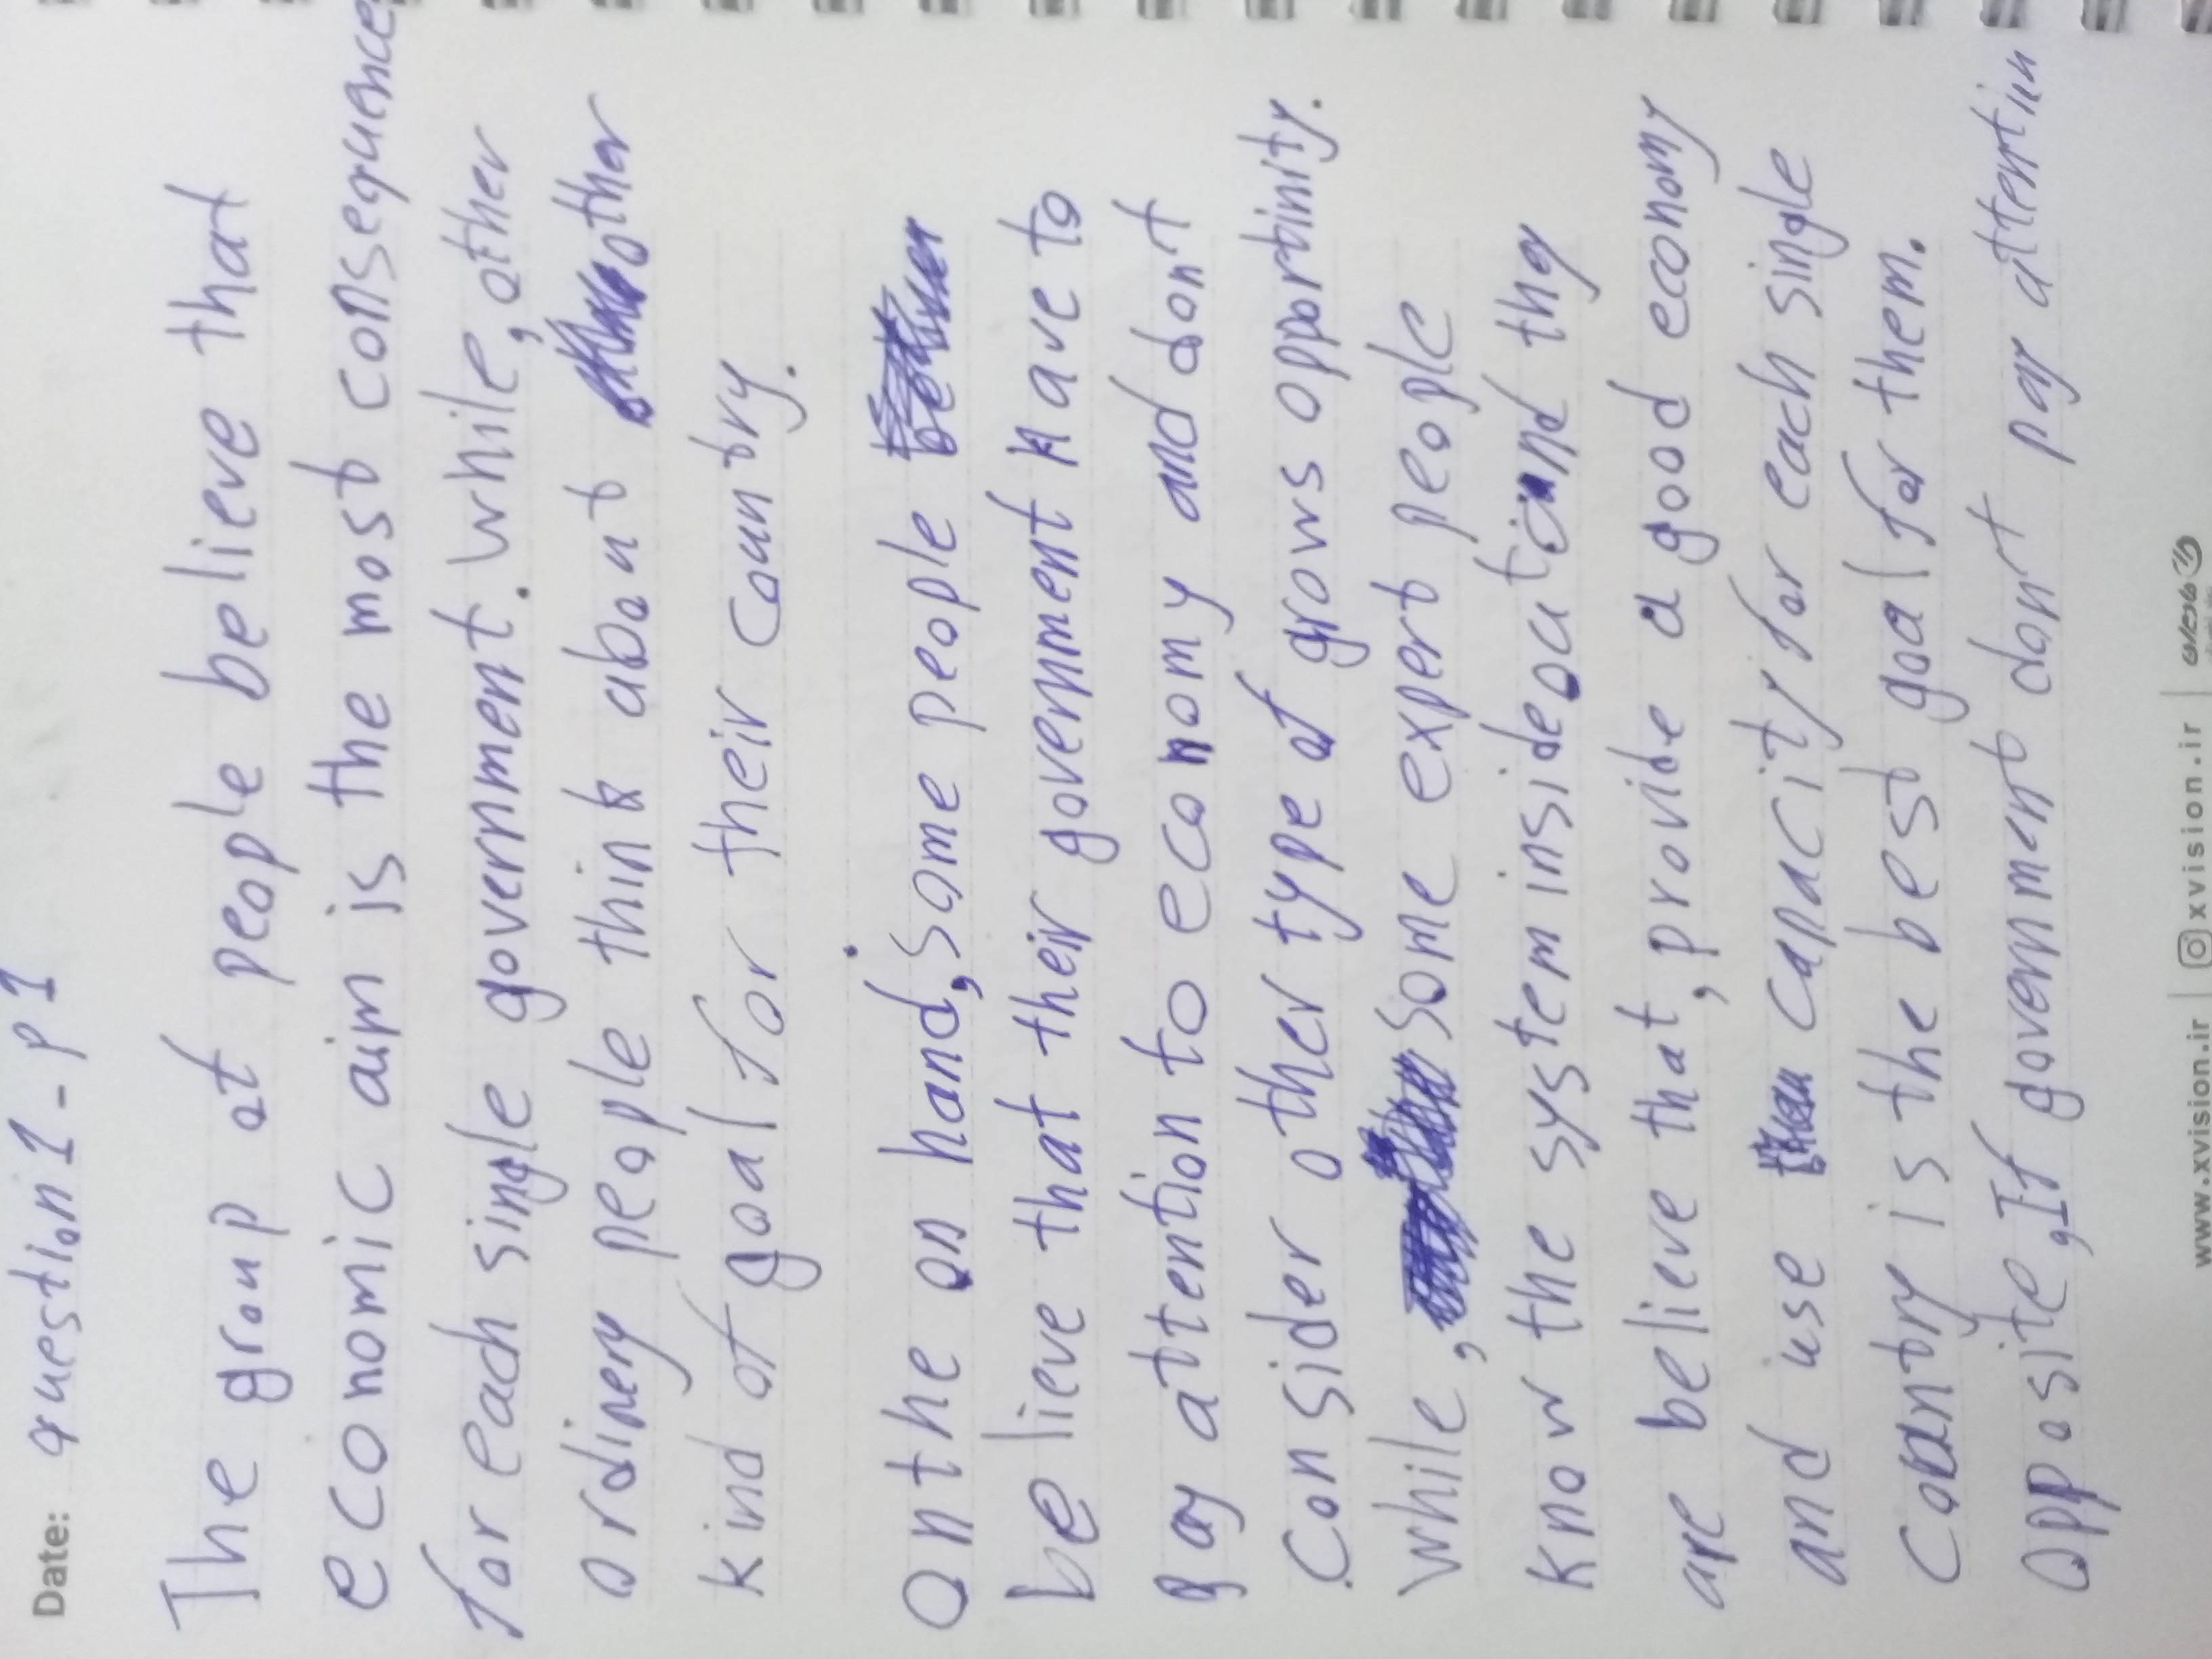 Date: question 1 - p1
The group of people believe that
economic aim is the most consequence
for each single government. While, other
ordinery people think about other
kind of goal for their country.
On the on hand, Some people
believe that their government have to
pay attention to economy and don't
Consider other type of grows opportinity.
While, Some expert people
know the system inside out and they
are believe that, provide a good economy
and use capacity for each single
Country is the best goal for them.
Opposite, If government don't pay attention
www.xvision.ir | xvision.ir |